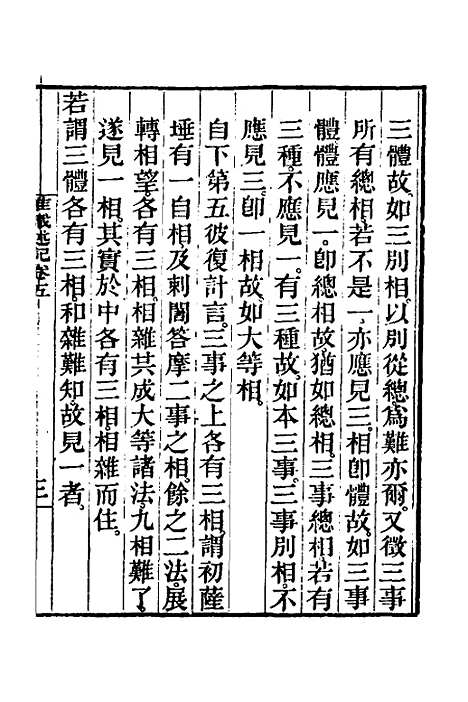 三體故。如三別相。以別從總。爲難亦爾。又徵三事
所有總相。若不是一。亦應見三。相卽體故。如三事
體。體應見一。卽總相故。猶如總相。三事總相。若有
三種。不應見一。有三種故。如本三事。三事別相。不
應見三。卽一相故。如大等相。
自下第五彼復計言。三事之上各有三相。謂初薩
埵有一自相。及剌闍答摩二事之相。餘之二法。展
轉相望。各有三相。相雜共成大等諸法。九相難了。
遂見一相。其實於中各有三相。相雜而住。
若謂三體各有三相。和雜難知。故見一者。
唯識述記卷五
三